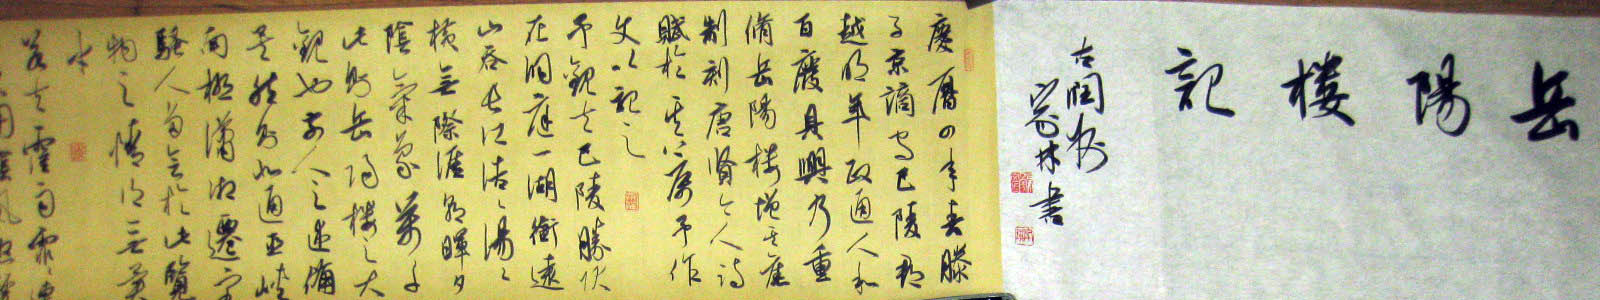 岳陽樓記
古閏州
林書
慶曆四年春滕
子京謫守巴陵郡
越明年政通人和
百廢具興乃重
脩岳陽樓增其舊
制刻唐賢今人詩
賦於其上屬予作
文以記之
予觀夫巴陵勝狀
在洞庭一湖銜遠
山吞長江浩〻湯〻
橫無際涯朝暉夕
陰氣象萬千
此則岳陽樓之大
觀也前人之述備
矣然則北通巫峽
南極瀟湘遷客
騷人多會於此覽
物之情得無異
乎
若夫霪雨霏〻連
月不開陰風怒號